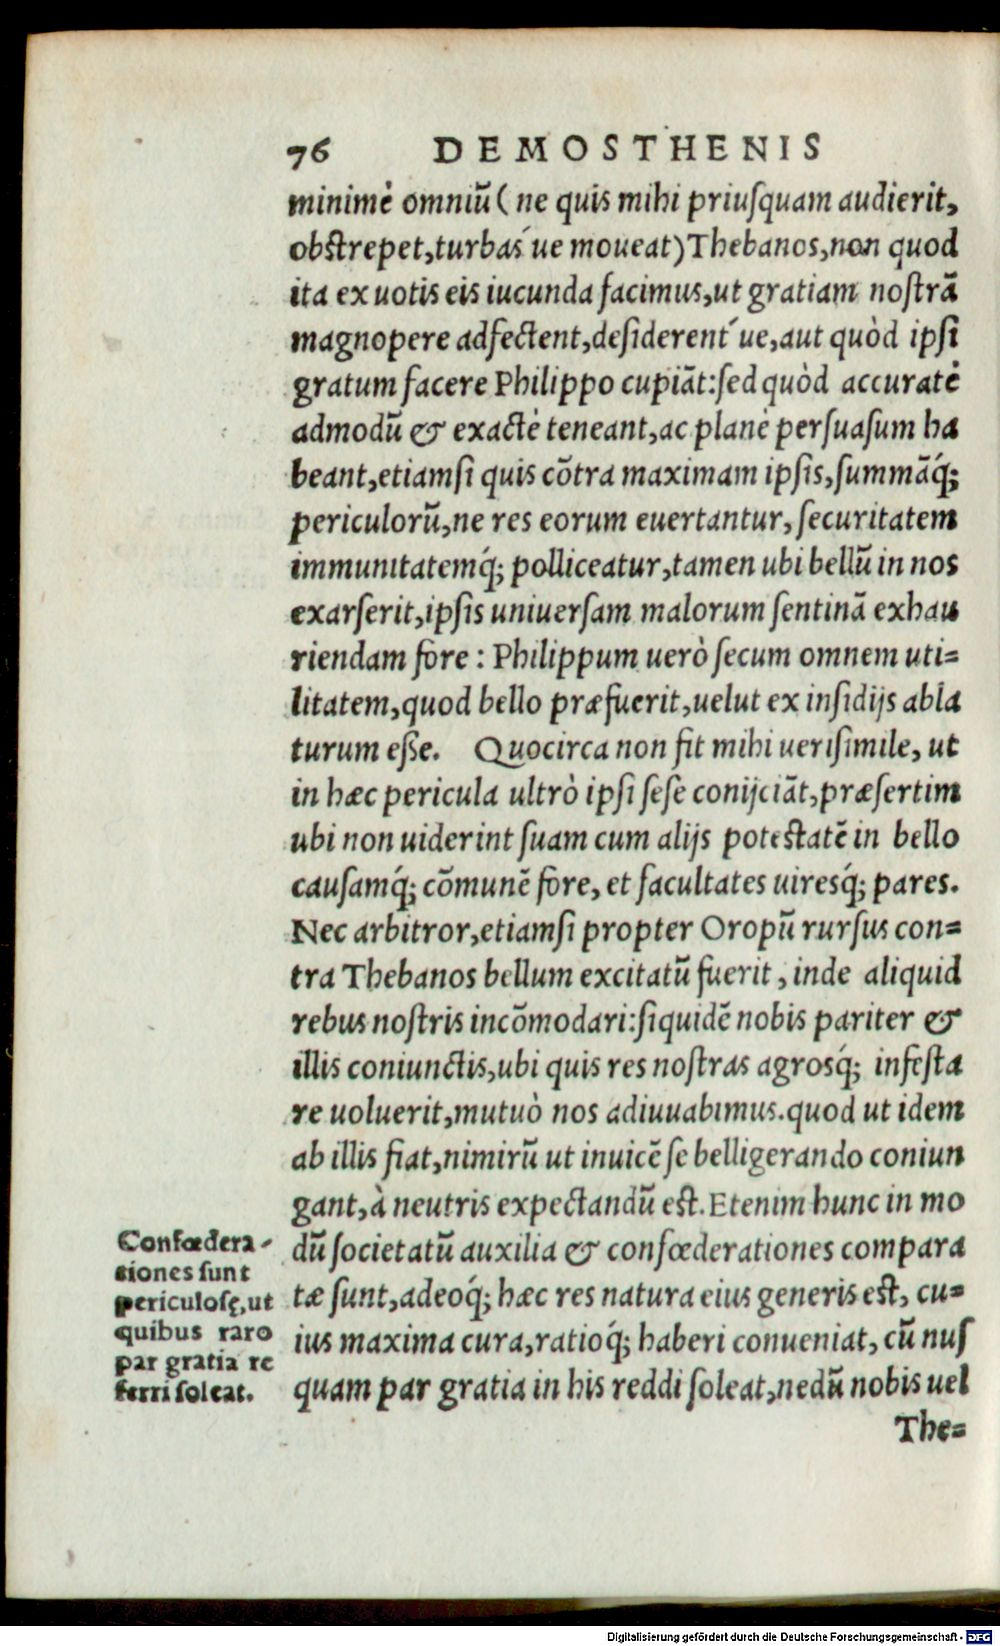 76 DEMOSTHENIS
minimè omniũ (ne quis mihi priuſquam audierit,
obſtrepet,turbas´ue moueat)Thebanos,non quod
ita ex uotis eis iucunda facimus,ut gratiam noſtrã
magnopere adfectent,deſiderent´ue,aut quòd ipſi
gratum facere Philippo cupiãt:ſed quòd accuratè
admodũ & exactè teneant,ac planè perſuaſum ha
beant,etiamſi quis cõtra maximam ipſis,ſummãq́;
periculorũ,ne res eorum euertantur,ſecuritatem
immunitatemq́; polliceatur,tamen ubi bellũ in nos
exarſerit,ipſis uniuerſam malorum ſentinã exhau
riendam fore : Philippum uerò ſecum omnem uti=
litatem,quod bello præfuerit,uelut ex inſidijs abla
turum eſſe. Quocirca non fit mihi ueriſimile, ut
in hæc pericula ultrò ipſi ſeſe conijciãt,præſertim
ubi non uiderint ſuam cum alijs poteſtatẽ in bello
cauſamq́; cõmunẽ fore, et facultates uiresq́; pares.
Nec arbitror,etiamſi propter Oropũ rurſus con=
tra Thebanos bellum excitatũ fuerit, inde aliquid
rebus noſtris incõmodari:ſiquidẽ nobis pariter &
illis coniunctis,ubi quis res noſtras agrosq́; infeſta
re uoluerit,mutuò nos adiuuabimus.quod ut idem
ab illis fiat,nimirũ ut inuicẽ ſe belligerando coniun
gant,à neutris expectandũ eſt. Etenim hunc in mo
dũ ſocietatũ auxilia & confœderationes compara
tæ ſunt,adeoq́; hæc res natura eius generis eſt, cu=
ius maxima cura,ratioq́; haberi conueniat, cũ nuſ
quam par gratia in his reddi ſoleat,nedũ nobis uel
The=
Confœdera-
tiones ſunt
periculoſę,ut
quibus raro
par gratia re
ferri ſoleat.
Digitalisierung gefördert durch die Deutsche Forschungsgemeinschaft - DFG